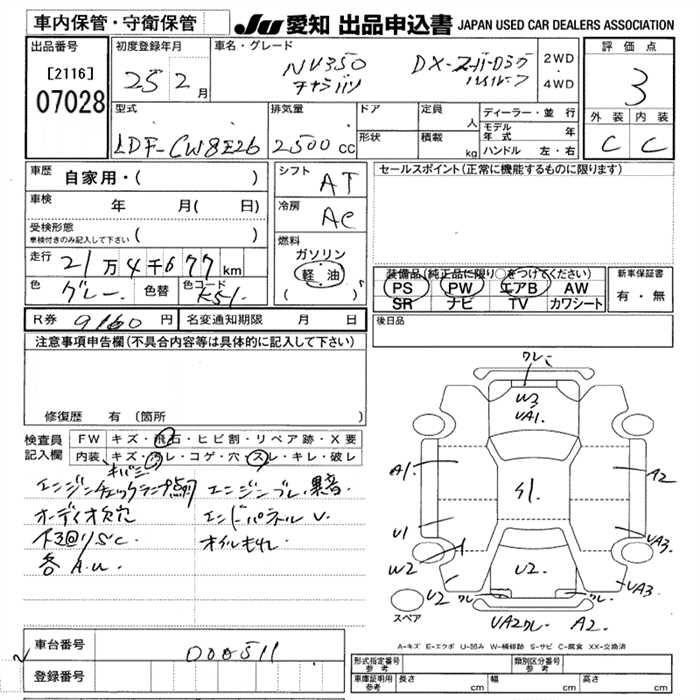 車内保管・守衛保管
JU 愛知 出品申込書 JAPAN USED CAR DEALERS ASSOCIATION
出品番号
[2116]
07028
初度登録年月
25 2月
車名・グレード
NV350 DX-スーパーロング
ハイルーフ
2WD
・
4WD
評価点
3
外装 内装
C C
型式
LDF-CW8E26
排気量
2500cc
ドア
形状
定員 人
積載 kg
ディーラー・並行
モデル年式 年
ハンドル 左・右
車歴 自家用・( )
車検 年 月( 日)
受検形態
車検付きのみ記入して下さい ( )
走行 21万4千677km
色 グレー 色替 色コード K51
シフト AT
冷房 AC
燃料
ガソリン
軽油
( )
セールスポイント(正常に機能するものに限ります)
装備品(純正品に限り○をつけてください)
PS PW エアB AW
SR ナビ TV カワシート
新車保証書
有・無
R券 9160円 名変通知期限 月 日
後日品
注意事項申告欄(不具合内容等は具体的に記入して下さい)
修復歴 有 (箇所 )
検査員記入欄
FW キズ・飛石・ヒビ割・リペア跡・X要
内装 キズ・汚レ・コゲ・穴・スレ・キレ・破レ
エンジンチェックランプ点灯 エンジンブレ、異音
オーディオ欠穴 エンドパネルU.
下回りSC. オイルもれ
各A.U.
クレ
W3
UA1.
A1
A2
S1.
U1
W2
UA3.
U2.
UA3
U2 クレ
クレ
UA2クレ A2.
スペア
A-キズ E-エクボ U-凹み W-補修跡 S-サビ C-腐食 XX-交換済
車台番号 000511
登録番号
形式指定番号 参考
類別区分番号 参考
車庫証明用 参考 長さ cm 幅 cm 高さ cm